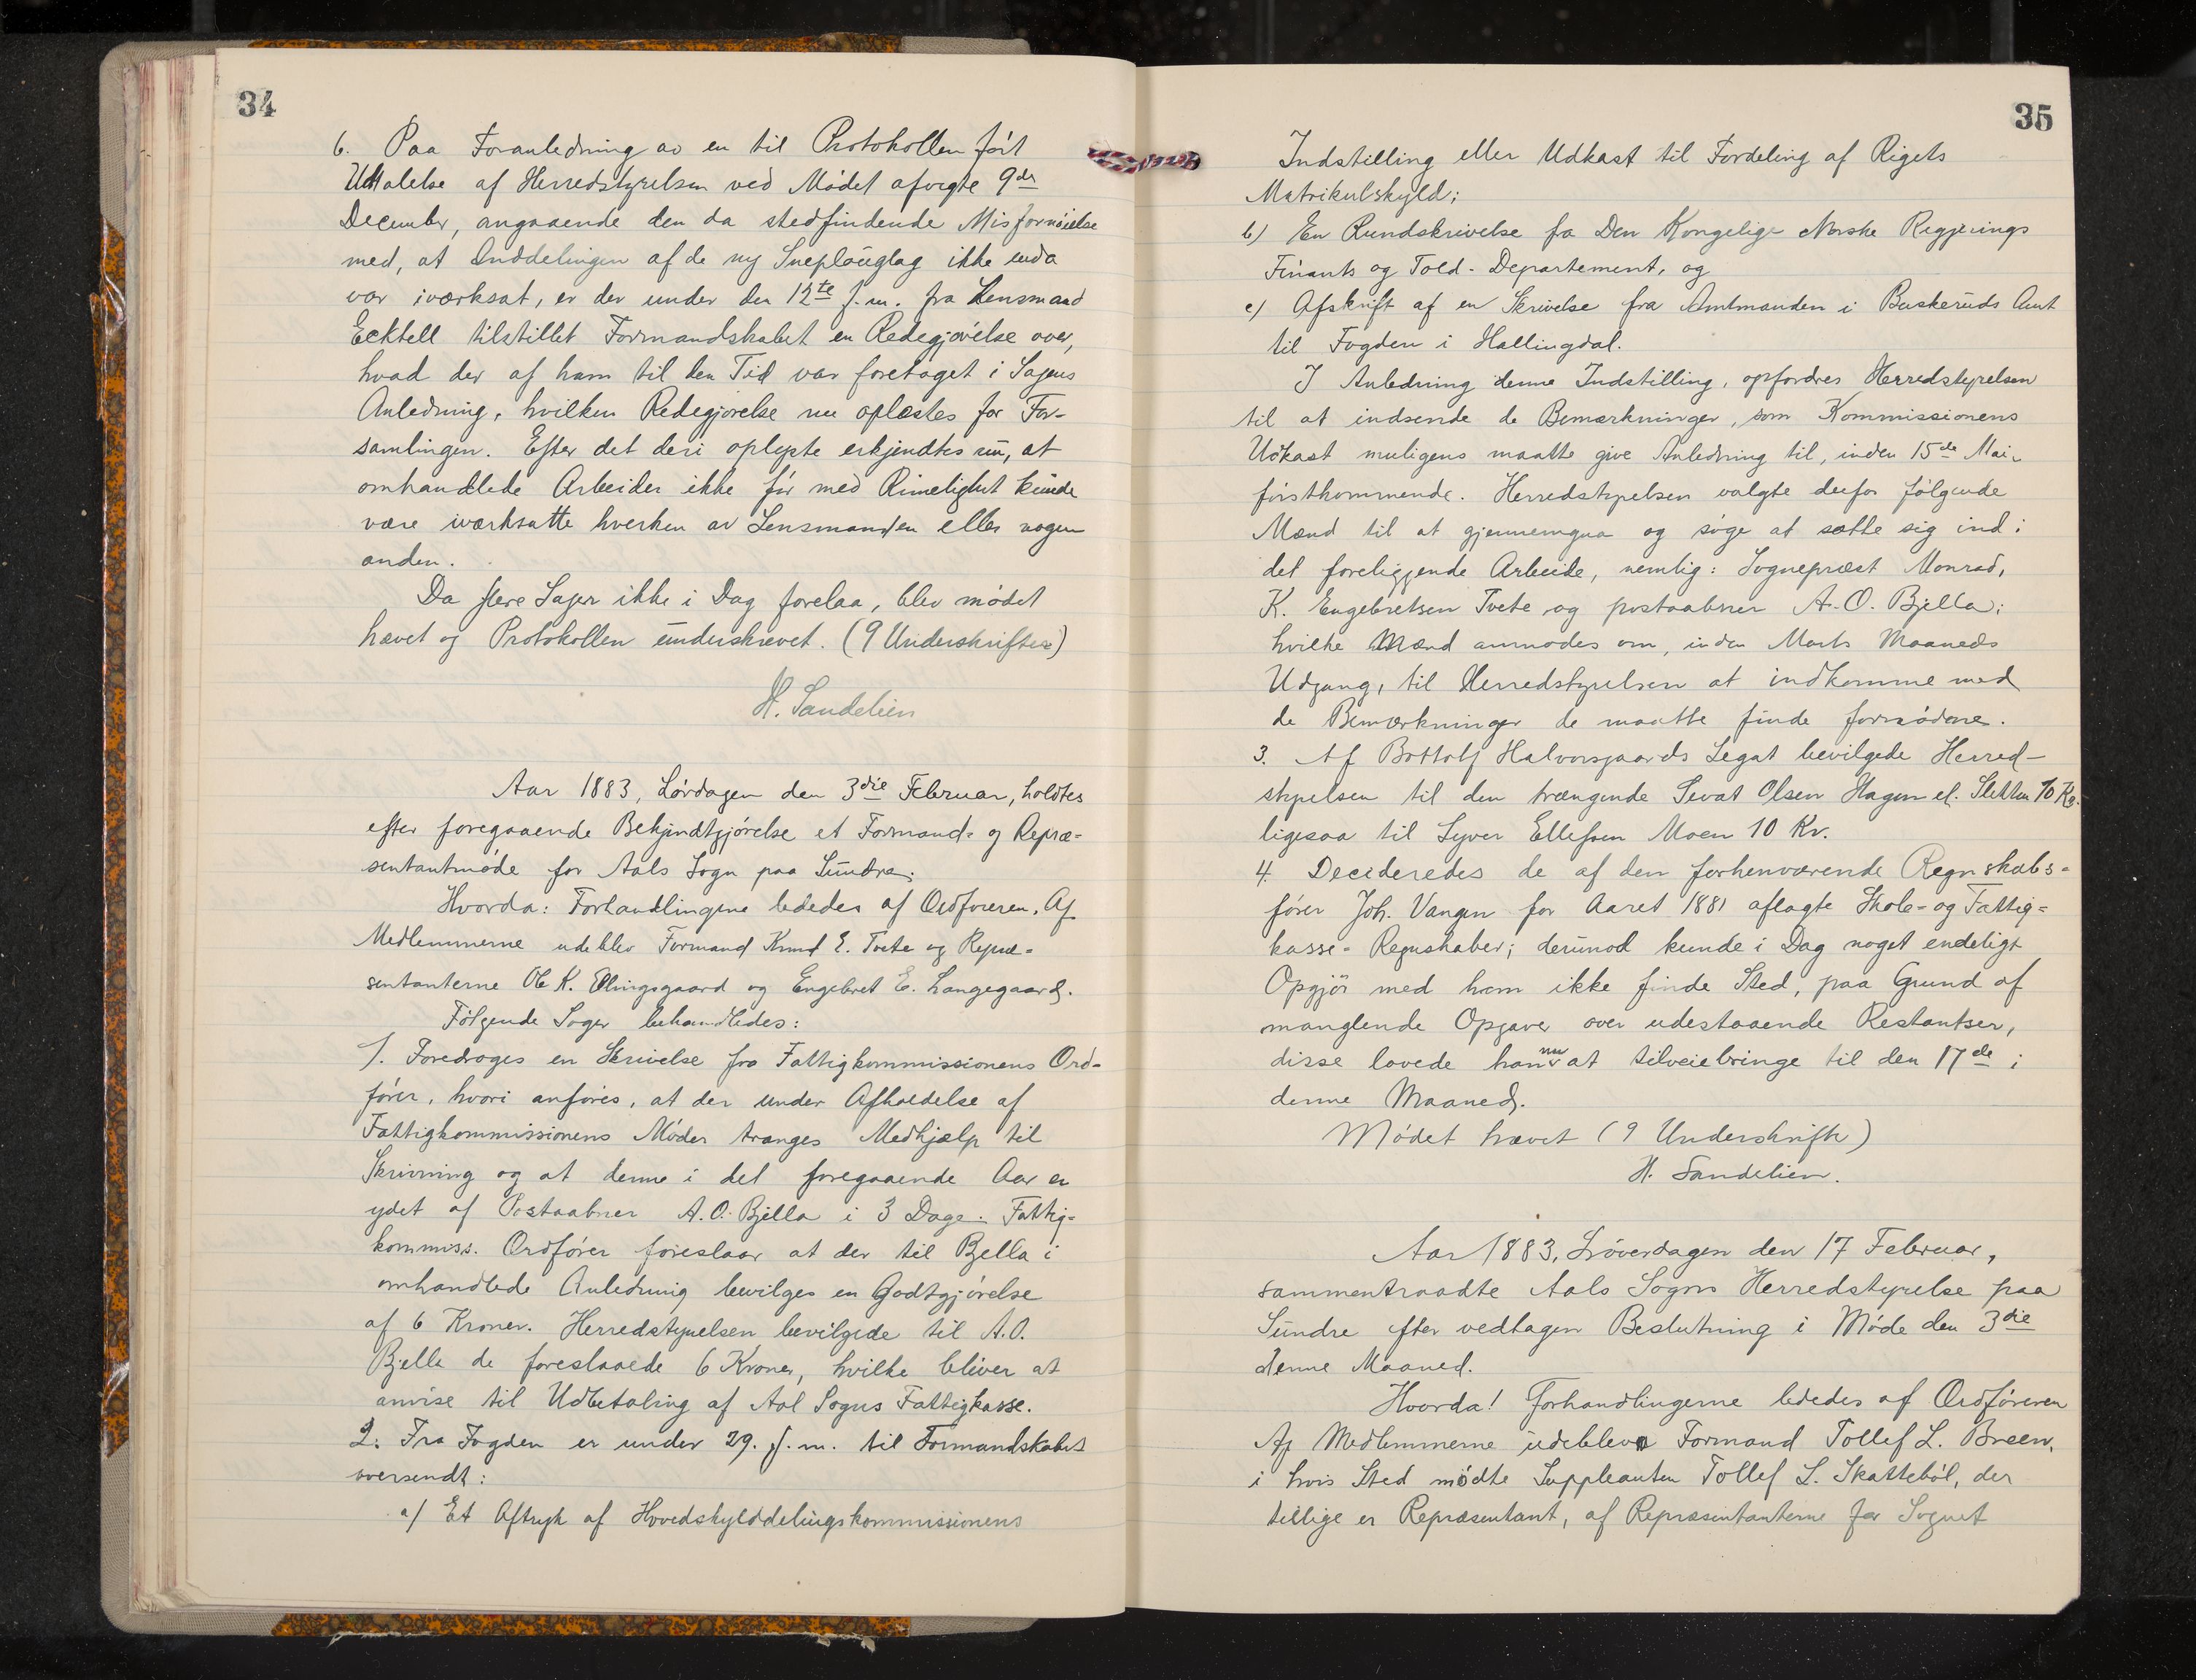 34
6. Paa Foranledning av en til Protokollen ført
Udtalelse af Herredstyrelsen ved Mødet afvigte 9de
December, angaaende den da stedfindende Misfornøielse
med, at Inddelingen af de ny Sneplouglag ikke enda
var iværksat, er der under den 12te f.m. fra Lensmand
Ecktell tilstillet Formandskabet en Redegjørelse over,
hvad der af ham til den Tid var foretaget i Sagens
Anledning, hvilken Redegjørelse nu oplæstes for For-
samlingen. Efter det deri oplyste erkjendtes nu, at
omhandlede Arbeider ikke før med Rimelighet kunde
være iværksatte hverken av Lensmanden eller nogen
anden.
Da flere Sager ikke i Dag forelaa, blev mødet
hævet og Protokollen underskrevet. (9 Underskrifter)
H. Sandelien
Aar 1883, Lørdagen den 3die Februar, holdtes
efter foregaaende Bekjendtgjørelse et Formand- og Repræ-
sentantmøde for Aals Sogn paa Sundre.
Hvorda: Forhandlingene lededes af Ordføreren. Af
Medlemmerne udeblev Formand Knud E. Tvete og Repræ-
sentanterne Ole K. Ellingsgaard og Engebret E. Langegaard.
Følgende Sager behandledes:
1. Foredroges en Skrivelse fra Fattigkommissionens Ord-
fører, hvori anføres, at der under Afholdelse af
Fattigkommissionens Møder trænges Medhjælp til
Skrivning og at denne i det foregaaende Aar er
ydet af Postaabner A.O. Bjella i 3 Dage. Fattig-
kommiss. Ordfører foreslaar at der til Bjella i
omhandlede Anledning bevilges en Godtgjørelse
af 6 Kroner. Herredstyrelsen bevilgede til A.O.
Bjella de foreslaaede 6 Kroner, hvilke bliver at
anvise til Udbetaling af Aal Sogns Fattigkasse.
2. Fra Fogden er under 29. f.m. til Formandskabet
oversendt:
a) Et Aftryk af Hovedskylddelingskommissionens
35
Indstilling eller Udkast til Fordeling af Rigets
Matrikulskyld;
b) En Rundskrivelse fa Den Kongelige Norske Regjerings
Finants og Told- Departement, og
c) Afskrift af en Skrivelse fra Amtmanden i Buskeruds Amt
til Fogden i Hallingdal.
I Anledning denne Indstilling, opfordres Herredstyrelsen
til at indsende de Bemærkninger, som Kommissionens
Udkast muligens maatte give Anledning til, inden 15de Mai
førstkommende. Herredstyrelsen valgte derfor følgende
Mænd til at gjennemgaa og søge at sætte sig ind i
det foreliggende Arbeide, nemlig: Sogneprest Monrad,
K. Engebretsen Tvete og postaabner A.O. Bjella;
hvilke Mænd anmodes om, inden Marts Maaneds
Udgang, til Herredstyrelsen at indkomme med
de Bemærkninger de maatte finde fornødne.
3. Af Bottolf Halvorsgaards Legat bevilgede Herred-
styrelsen til den trængende Sevat Olsen Hagen el. Sletten 10 Kr.
ligesaa til Syver Ellefsen Moen 10 Kr.
4. Decideredes de af den forhenværende Regnskabs-
fører Joh. Vangen for Aaret 1881 aflagte Skole- og Fattig-
kasse- Regnskaber; derimod kunde i Dag noget endeligt
Opgjør med ham ikke finde Sted, paa Grund af
manglende Opgave over udestaaende Restantser,
disse lovede han nu at tilveiebringe til den 17de i
denne Maaned.
Mødet hævet (9 Underskrifter)
H. Sandelien.
Aar 1883, Løverdagen den 17 Februar,
sammentraadte Aals Sogns Herredstyrelse paa
Sundre efter vedtagen Beslutning i Møde den 3die
denne Maaned.
Hvorda! Forhandlingerne lededes af Ordføreren
Af Medlemmerne udeblev Formand Tollef L. Breen,
i hvis Sted mødte Suppleanten Tollef S. Skattebøl, der
tillige er Repræsentant, af Repræsentanterne for Sognet